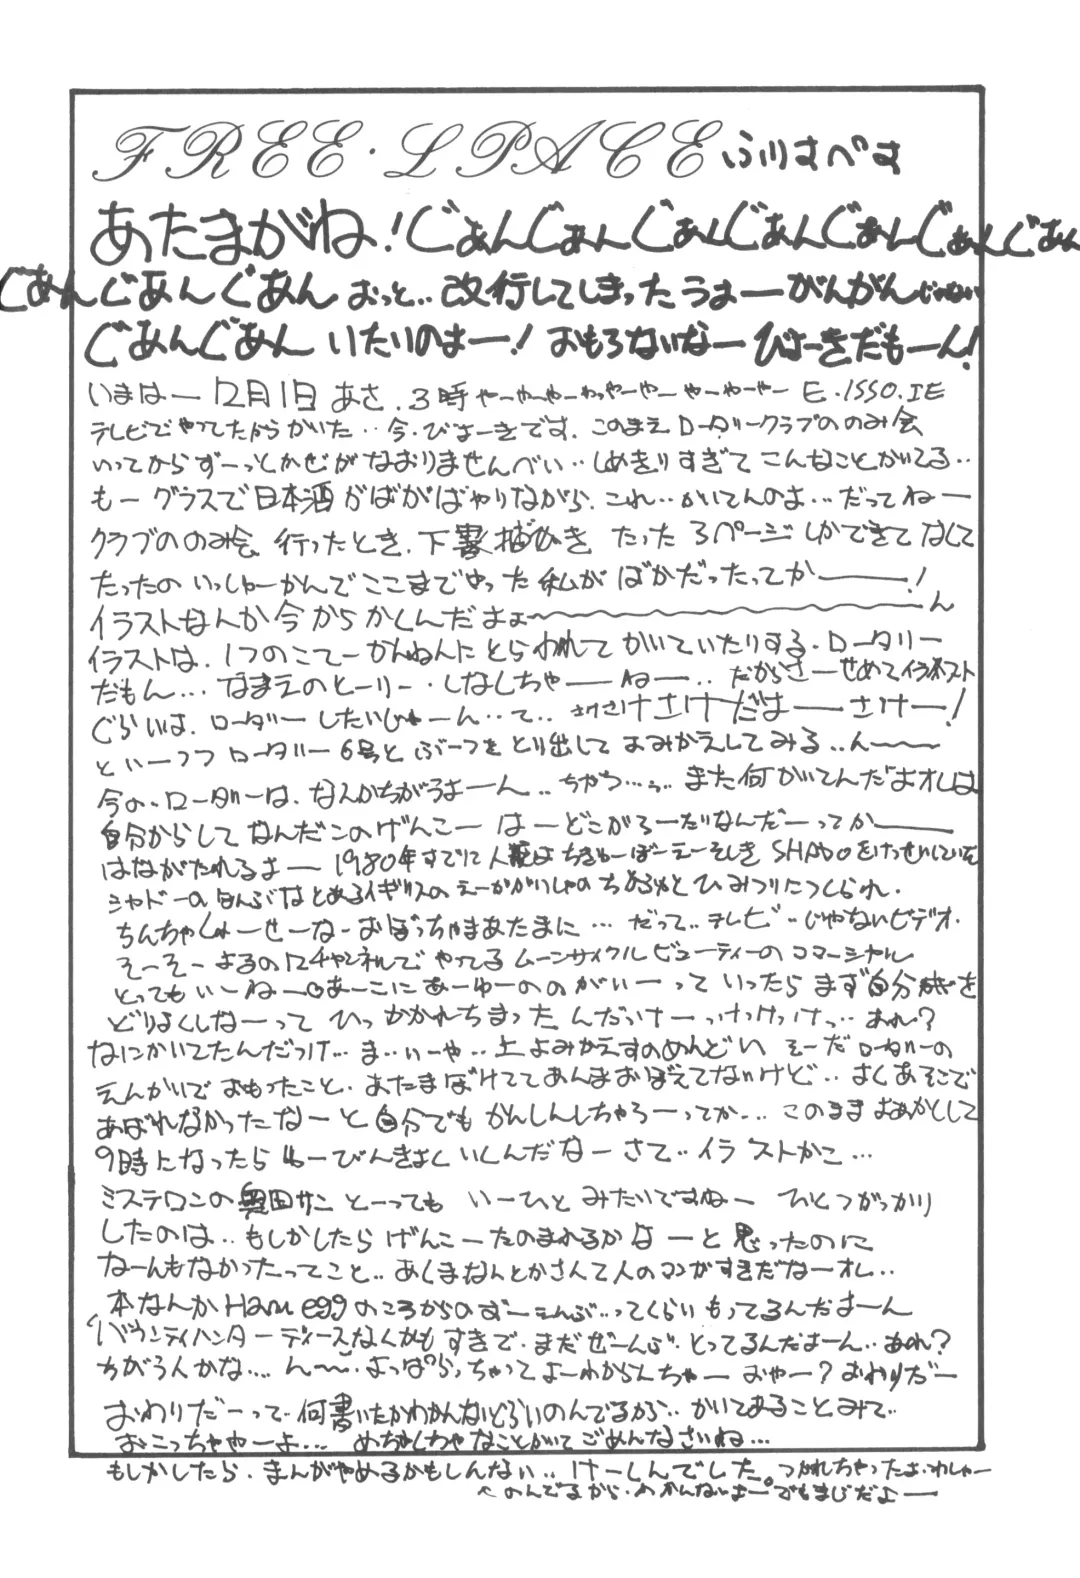 FREE・LPACE ふりすぺす
あたまがね!ぐあんぐあんぐあんぐあんぐあんぐあんぐあん
ぐあんぐあんぐあん おっと‥改行してしまったうぉーがんがんじゃない
ぐあんぐあん いたいのよー! おもろないなー びょーきだもーん!
いまはー 12月1日 あさ.3時 やーやーやーわっやーやー やーやーやー E.ISSO.IE
テレビでやってたからかいた‥今.びょーきです.このまえロータリークラブののみ会
いってからずーっとかぜがなおりませんべい‥しめきりすぎてこんなことかいてる‥
もーグラスで日本酒がばがばやりながら.これ‥かいてんのよ…だってねー
クラブののみ会 行ったとき.下描き たった3ページしかできてなくて
たったのいっしゅーかんでここまでやった私がばかだったってかー!
イラストなんか今からかくんだよォ〜ん
イラストは.1つのこてーかんねんにとらわれてかいていたりする.ロータリー
だもん…なまえのとーりー.しなくちゃーねー‥だからさーせめてイラスト
ぐらいは.ローダリーしたいじゃーん‥て‥さけさけさけだよーさけー!
といーつつロータリー6号とぶーつをとり出してよみかえしてみる‥ん〜
今の.ローダリーは.なんかちがうよーん‥ちやう…また何かいてんだよオレは
自分からしてなんだこのげんこーはーどこがろーたりなんだーってかー
はながたれるよー1980年すでに人類はちきゅーぼーえーそしきSHADOをけっせいしていた
シャドーのほんぶはとあるイギリスのえーかがいしゃのちかふかくひみつりにつくられ.
ちんちゃくしゅーせーなーおぼっちゃまあたまに…だって‥テレビ‥じゃないビデオ.
そーそーよるの12チャンネルでやってるムーンサイクルビューティーのコマーシャル
とってもいーねーあーこにあーゆーののがいーっていったらまず自分を
どりょくしなーってひっかかれちまったんだっけーっけっけっけっ‥あれ?
なにかいてたんだっけ…ま‥いーや‥上よみかえすのめんどいそーだロータリーの
えんかいでおもったこと.あたまぼけててあんまおぼえてないけど‥よくあそこで
あばれなかったなーと自分でもかんしんしちゃうーってか…このままあさがとして
9時になったらゆーびんきょくいくんだなーさて‥イラストかこ…
ミステロンの奥田サンとーってもいーひとみたいですねーひとつがっかり
したのは‥もしかしたらげんこーたのまれるかなーと思ったのに
なーんもなかったってこと‥あくまなんとかさんて人のマンがすきだなーオレ‥
本なんかHam eggのころからのずーえんぶ‥ってくらいもってるんだよーん
バウンティハンターディースなくがもすきで.まだぜーんぶ.とってるんだよーん‥あれ?
ちがう人かな…ん〜.よっぱらっちゃってよーわからんちゃーおやー?おわりだー
おわりだーって.何書いたかわかんないぐらいのんでるから‥かいてあることみて.
おこっちゃやーよ…めちゃくちゃなことかいてごめんなさいね…
もしかしたら.まんがやめるかもしんない‥けーしんでした。つかれちゃったよ.わしゃー
へのんでるから.わかんないよーでもまじだよー